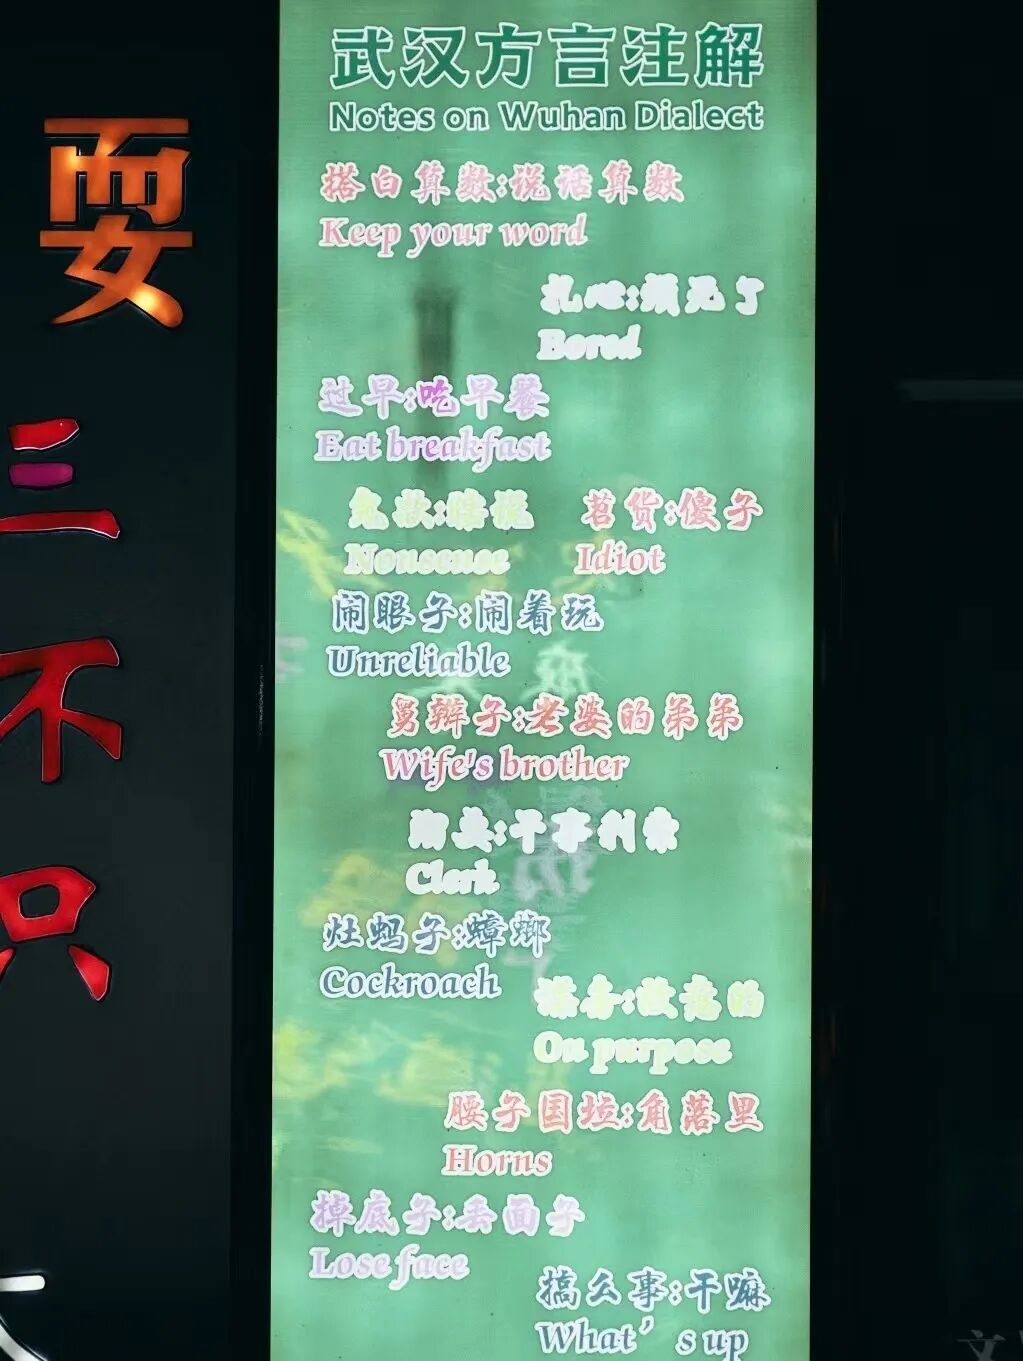 武汉方言注解
Notes on Wuhan Dialect
搭白算数:说话算数
Keep your word
Bored
过早:吃早餐
Eat breakfast
瞎说
Nonsense
苕货:傻子
Idiot
闹眼子:闹着玩
Unreliable
舅辫子:老婆的弟弟
Wife's brother
干事利索
Clerk
灶蚂子:蟑螂
Cockroach
故意的
On purpose
腰子国垃:角落里
Horns
掉底子:丢面子
Lose face
搞么事:干嘛
What's up
耍
三
不
只